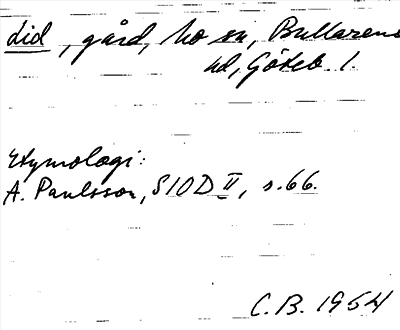 did, gård, Mo sn, Bullarens
hd, Göteb. l.
Etymologi:
A. Paulsson, SIOD II, s. 66.
C. B. 1954